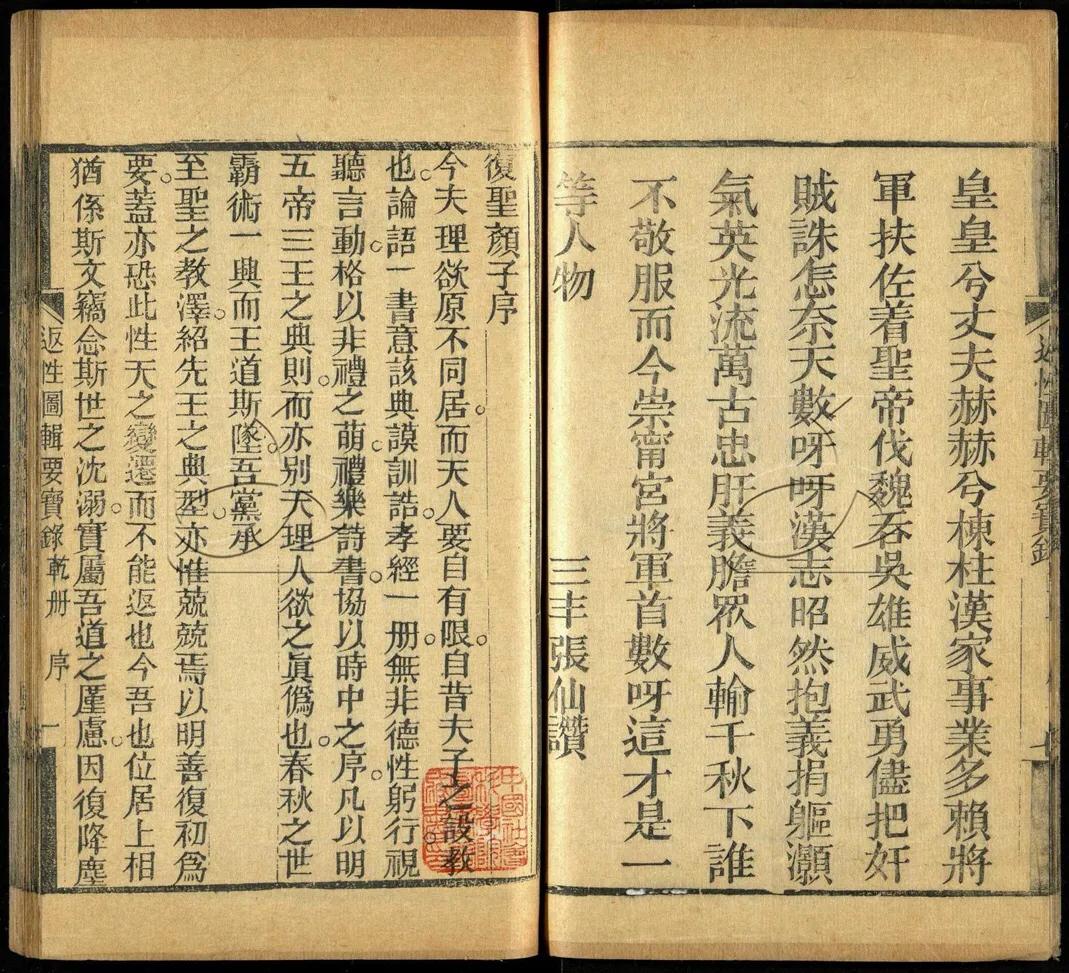 皇皇兮丈夫赫赫兮棟柱漢家事業多賴將
軍扶佐着聖帝伐魏吞吳雄威武勇儘把奸
賊誅怎奈天數呀呀漢志昭然抱義捐軀灝
氣英光流萬古忠肝義膽眾人輸千秋下誰
不敬服而今崇甯宮將軍首數呀這才是一
等人物
三丰張仙讚
復聖顏子序
今夫理欲原不同居。而天人要自有限。自昔夫子之設教
也。論語一書意該典謨訓誥。孝經一册。無非德性躬行視
聽言動。格以非禮之萌。禮樂詩書。協以時中之序。凡以明
五帝三王之典則。而亦别天理人欲之眞僞也。春秋之世
霸術一興而王道斯墜。吾黨承
至聖之教澤。紹先王之典型。亦惟兢兢焉以明善復初爲
要。蓋亦恐此性天之變遷而不能返也今吾也位居上相
猶係斯文竊念斯世之沈溺。實屬吾道之廑慮。因復降塵
返性圖輯要寶錄 乾册 序 一